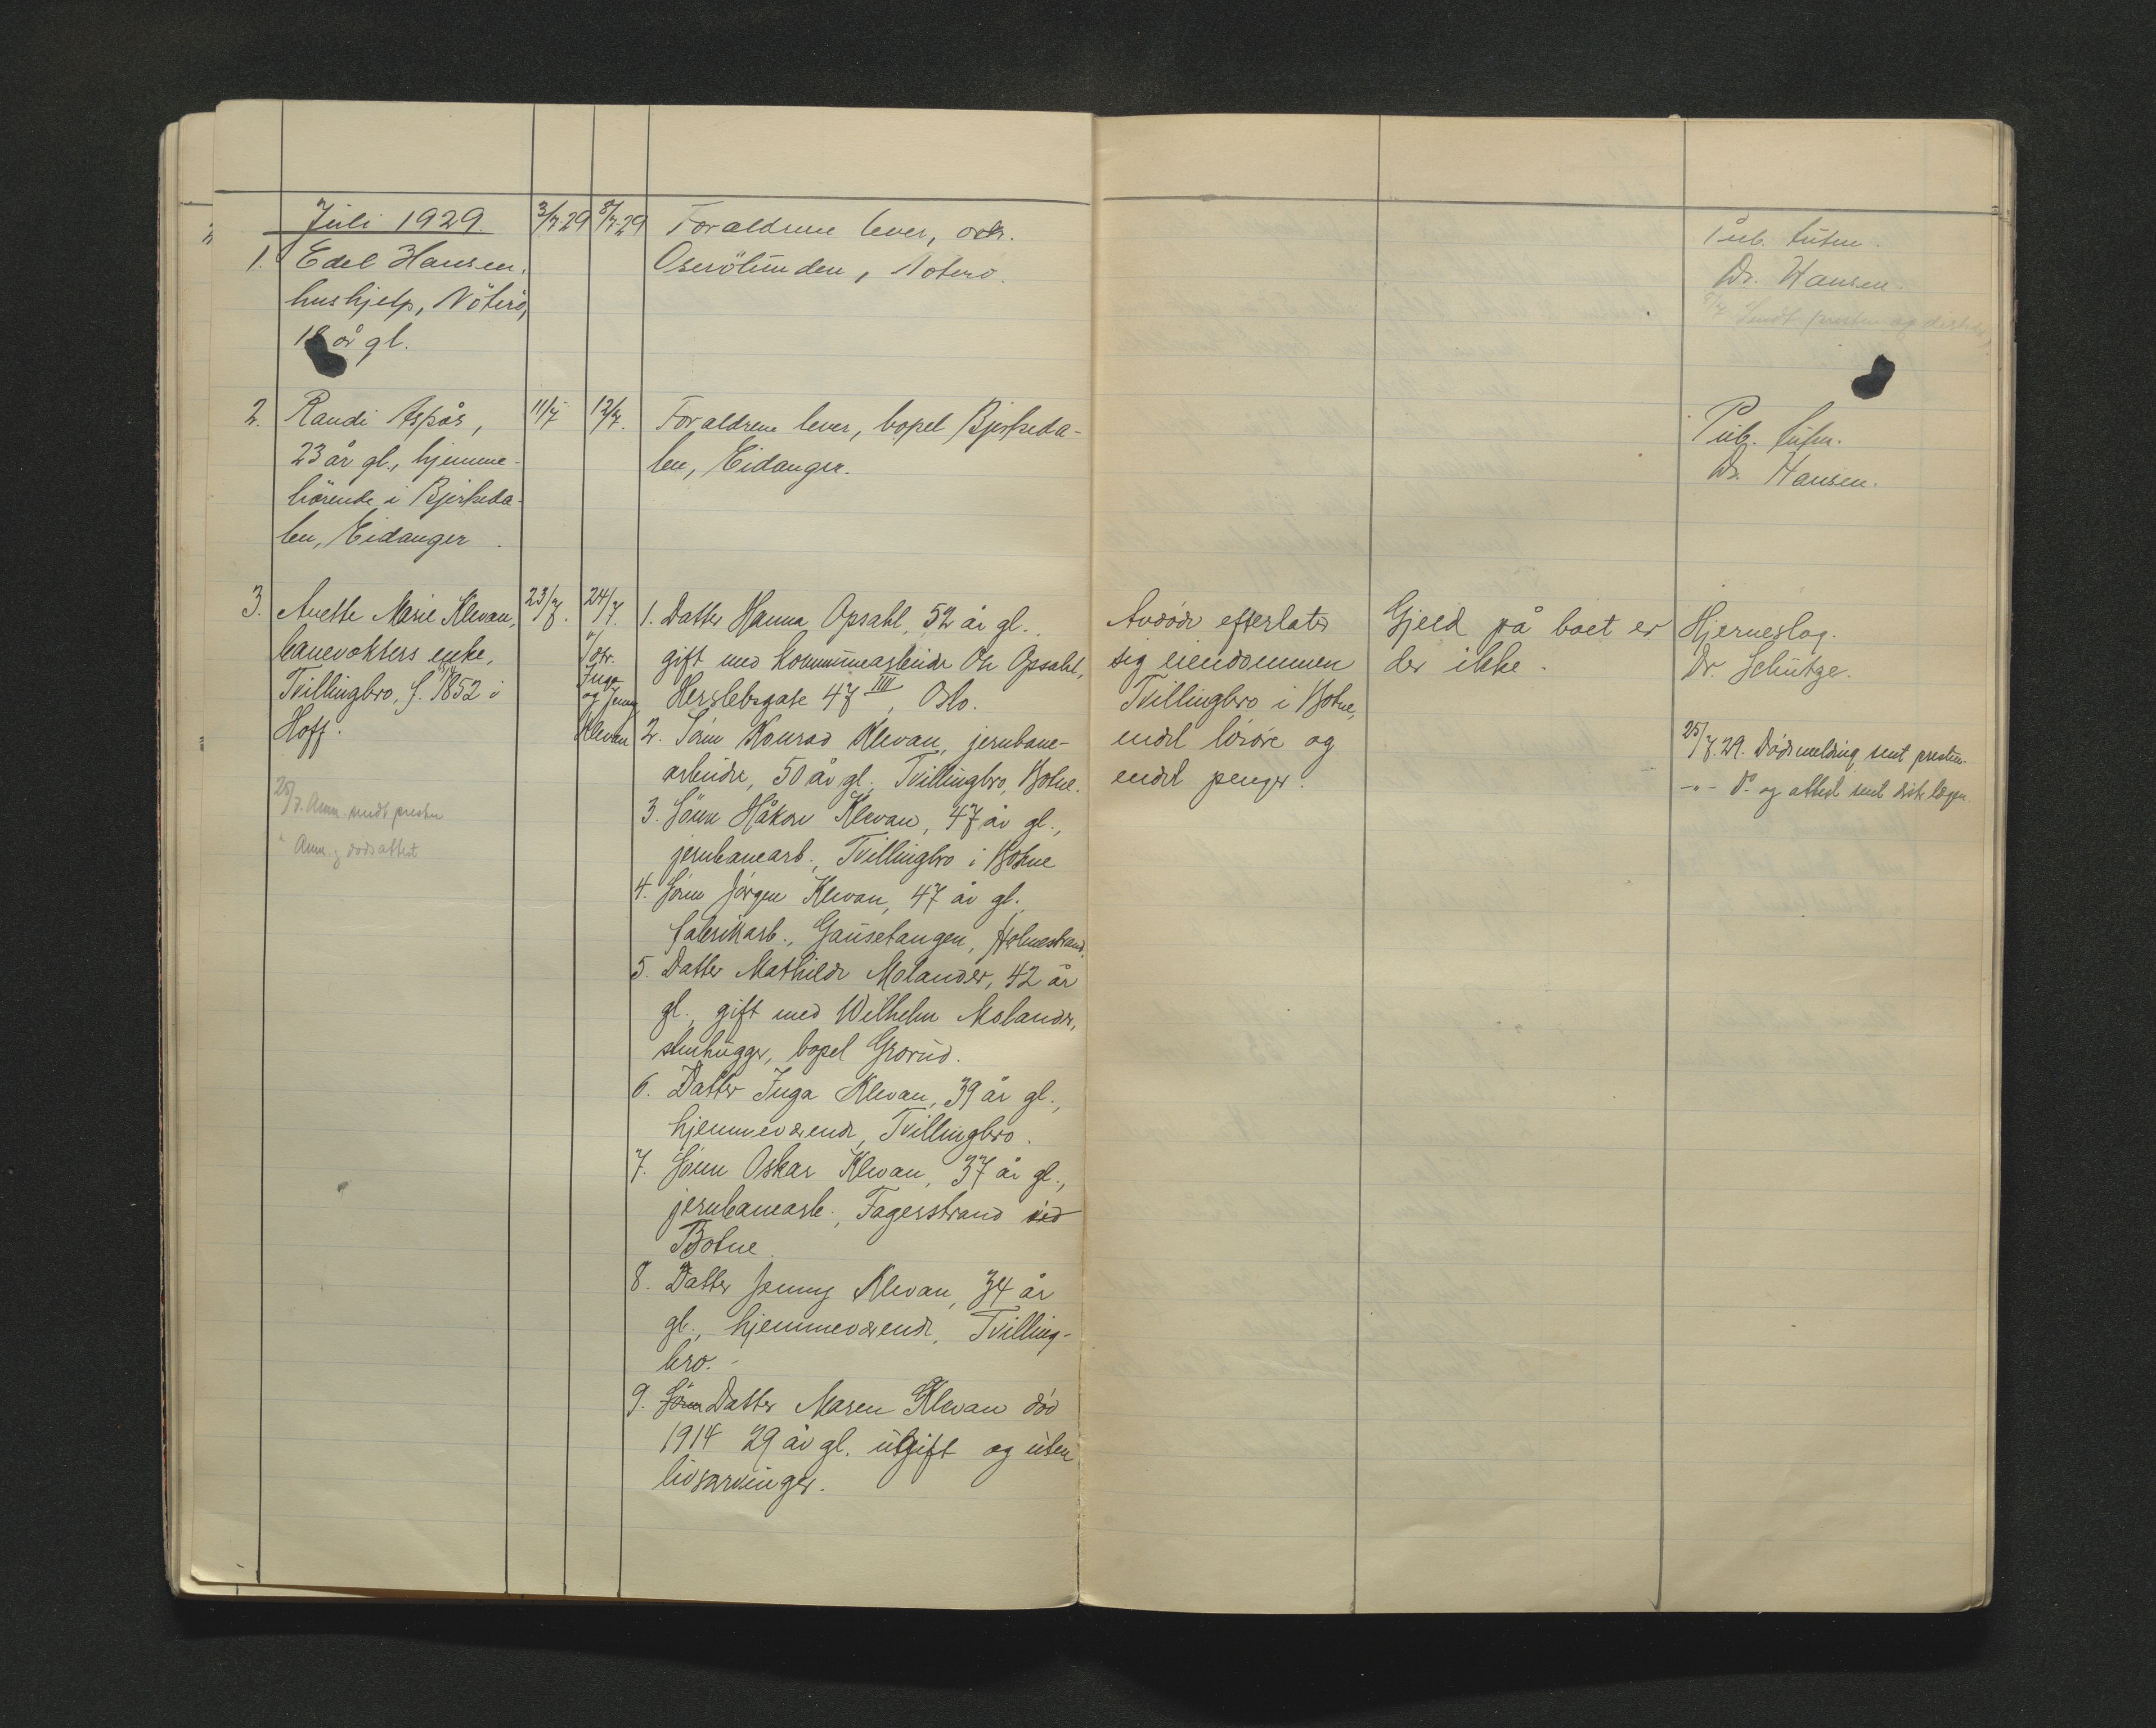 Juli 1929.
3/7-29
8/7-29
1. Edel Hansen,
hushjelp, Nöterö,
18 år gl.
Foraldrene lever, adr.
Oserölunden, Nöterö.
Pub. tuber.
Dr. Hansen.
8/7 Sendt presten og distr.
2. Randi Aspås,
23 år gl., hjemme-
hörende i Bjerkeda-
len, Eidanger.
11/7
12/7.
Foraldrene lever, bopel Bjerkeda-
len, Eidanger.
Pub. tuber.
Dr. Hansen.
3. Anette Marie Klevan,
banevokters enke,
Tvillingbro, f. 1852 i
Hoff.
25/7. Anm. sendt presten
" Anm. og dødsattest
23/7.
24/7.
v/
døtr.
Inga
og Jenny
Klevan
1. Datter Hanna Opsahl, 52 år gl.,
gift med kommunearbeider Ole Opsahl,
Herslebsgate 47 III, Oslo.
2. Sönn Konrad Klevan, jernbane-
arbeider, 50 år gl., Tvillingbro, Botne.
3. Sönn Håkon Klevan, 47 år gl.,
jernbanearb., Tvillingbro i Botne
4. Sönn Jörgen Klevan, 47 år gl.,
fabrikkarb., Gausetangen, Holmestrand.
5. Datter Mathilde Molander, 42 år
gl., gift med Wilhelm Molander,
stenhugger, bopel Grorud.
6. Datter Inga Klevan, 39 år gl.,
hjemmeværende, Tvillingbro.
7. Sönn Oskar Klevan, 37 år gl.,
jernbanearb., Fagerstrand ved
Botne.
8. Datter Jenny Klevan, 34 år
gl., hjemmeværende, Tvilling-
bro. -
9. Sönn Datter Maren Klevan död
1914 29 år gl. ugift og uten
livsarvinger.
Avdöde efterlater
sig eiendommen
Tvillingbro i Botne,
endel lösöre og
endel penger.
Gjeld på boet er
der ikke.
Hjerneslag.
Dr. Schutze.
25/7.29. Dödsmelding sent presten.
-"- Do og attest sent distr. lægen.